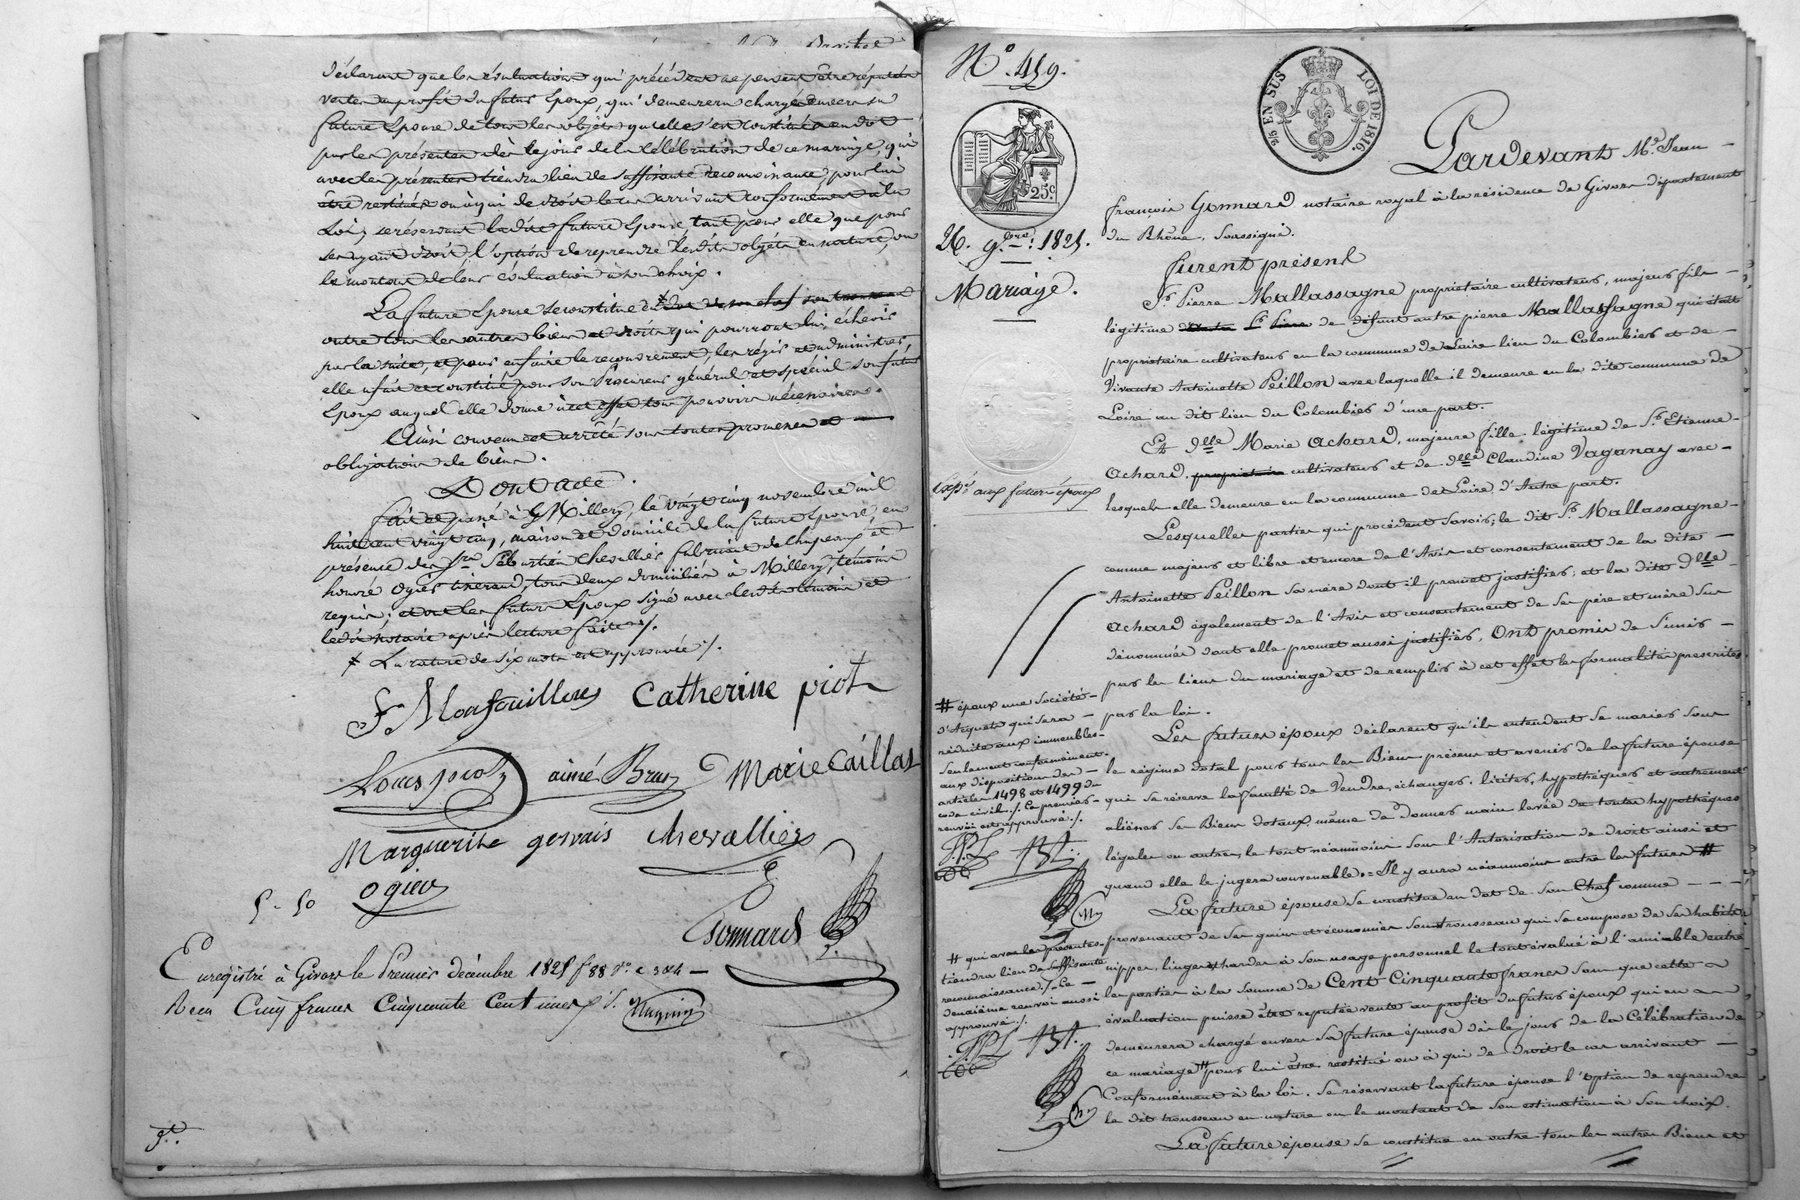 déclarant que les évaluations qui précèdent ne pensent être réputées
vente au profit du futur Epoux, qui demeurera chargé envers sa
future Epouse de tous les objets qu'elle s'est constitués en dot
par les présentes dès le jour de la célébration de ce mariage, qui
avec les présentes tiendra lieu de suffisante reconnaissance, pour lui
être restitués ou à qui de droit le cas arrivant conformément à la
Loi, se réservant la dite future Epouse, tant pour elle que pour
ses ayant droit, l'option de reprendre lesdits objets en nature, ou
le montant de leur évaluation à son choix.
La future Epouse se constitue
outre tous les autres biens et droits qui pourront lui échevir
par la suite, et pour en faire le recouvrement, les régir et administrer,
elle a fait et constitué pour son Procureur général et spécial son futur
Epoux auquel elle donne à cet effet tous pouvoirs nécessaires.
Ainsi convenu et arrêté sous toutes promesses et
obligations de biens.
Dont acte.
fait et passé à Millery, le vingt cinq novembre mil
huit cent vingt cinq, maison et domicile de la future Epouse, en
présence des Srs Sébastien Chevallier fabricant de chapeaux, et
honoré Ogier tisserand, tous deux domiciliés à Millery, témoins
requis; et ont les futurs Epoux signé avec lesdits témoins et
ledit notaire après lecture faite ./.
La rature de six mots est approuvée ./.
Catherine piot
Louis piot aimé Brun Marie Caillat
Marguerite gervais chevallier
ogier
5-50
Gonnard
Enregistré à Givors le Premier décembre 1825 f° 88 V° c 3 &4
Reçu Cinq francs Cinquante Centimes
N° 459.
2/10 EN SUS LOI DE 1816.
25 c
26. 9bre 1825.
Mariage.
Pardevant Me Jean
françois Gonnard notaire royal à la résidence de Givors département
du Rhône, Soussigné.
furent présent
Sr Pierre Mallassagne propriétaire cultivateur, majeur fils
légitime de défunt autre pierre Mallassagne qui était
propriétaire cultivateur en la commune de Loire lieu du Colombier et de
Vivante Antoinette Peillon avec laquelle il demeure en la dite commune de
Loire au dit lieu du Colombier d'une part.
Et Dlle Marie Achard, majeure fille légitime de Sr Etienne
Achard, propriétaire cultivateur et de Dlle Claudine Vaganay avec
lesquels elle demeure en la commune de Loire, d'Autre part.
Expé aux futurs époux
Lesquelles parties qui procèdent savoir; le dit Sr Mallassagne
comme majeur et libre et encore de l'Avis et consentement de la dite
Antoinette Peillon sa mère dont il promet justifier; et la dite Dlle
Achard également de l'Avis et consentement de ses père et mère sus
dénommés dont elle promet aussi justifier, Ont promis de s'unir
par les liens du mariage et de remplir à cet effet les formalités prescrites
par la loi.
Les futurs époux déclarent qu'ils entendent se marier sous
le régime dotal pour tous les Biens présens et avenir de la future épouse
qui se réserve la faculté de Vendre, échanger, liciter, hypothéquer et autrement
aliéner ses Biens dotaux, même de donner main levée de toutes hypothèques
légales ou autres, le tout néanmoins sous l'Autorisation de droit ainsi et
quand elle le jugera convenable. = Il y aura néanmoins entre les futurs #
# époux une Société
d'Acquets qui sera
réduite aux immeubles
seulement conformément
aux dispositions des
articles 1498 et 1499 du
code civil ./. Ce premier
renvoi est approuvé ./.
La future épouse se constitue en dot de son Chef comme
provenant de ses gains et économies son trousseau qui se compose de ses habits
nippes, linges et hardes à son usage personnel le tout évalué à l'amiable entre
les parties à la somme de Cent Cinquante francs sans que cette
évaluation puisse être réputée vente au profit du futur époux qui en
demeurera chargé envers Sa future épouse dès le jour de la Célébration de
ce mariage # pour lui être restitué ou à qui de droit le cas arrivant
Conformément à la loi. Se réservant la future épouse l'option de reprendre
le dit trousseau en nature ou le montant de son estimation à son choix.
# qui avec les présentes
tiendra lieu de suffisante
reconnaissance ./. Ce
deuxième renvoi aussi
approuvé ./.
La future épouse se constitue en outre tous les autres Biens et